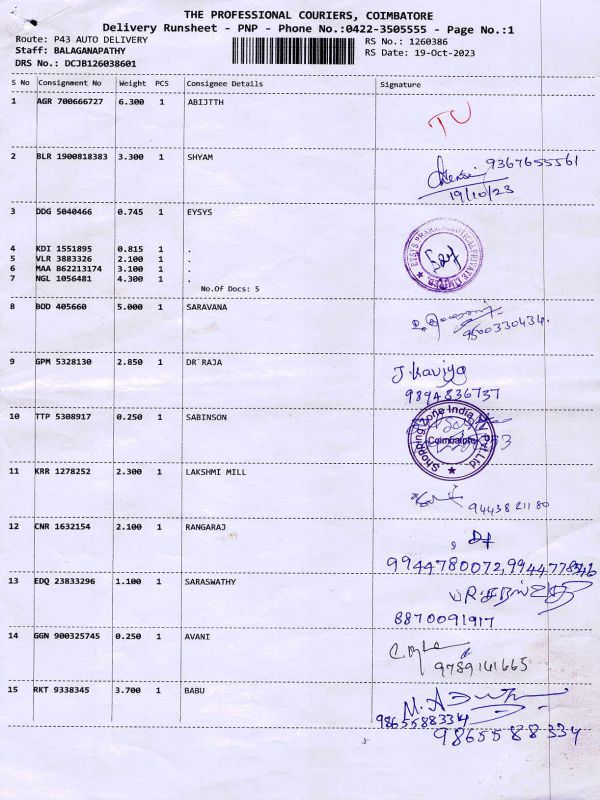 THE PROFESSIONAL COURIERS, COIMBATORE
Delivery Runsheet - PNP - Phone No.:0422-3505555 - Page No.:1
Route: P43 AUTO DELIVERY
RS No.: 1260386
Staff: BALAGANAPATHY
RS Date: 19-Oct-2023
DRS No.: DCJB126038601
S No Consignment No Weight PCS Consignee Details Signature
1 AGR 700666727 6.300 1 ABIJTTH
TU
2 BLR 1900818383 3.300 1 SHYAM 9367655561
19/10/23
3 DDG 5040466 0.745 1 EYSYS
4 KDI 1551895 0.815 1 .
5 VLR 3883326 2.100 1 .
6 MAA 862213174 3.100 1 .
7 NGL 1056481 4.300 1 .
No.Of Docs: 5
EYSYS PHARMACEUTICAL PRIVATE LIMITED
8 BOD 405660 5.000 1 SARAVANA
9500330434.
9 GPM 5328130 2.850 1 DR`RAJA
J. Kaviya
9894836737
10 TTP 5308917 0.250 1 SABINSON
Shopping Zone India TV Pvt.Ltd.
Coimbatore
11 KRR 1278252 2.300 1 LAKSHMI MILL
9443821180
12 CNR 1632154 2.100 1 RANGARAJ
9944780072,
13 EDQ 23833296 1.100 1 SARASWATHY
8870091917
14 GGN 900325745 0.250 1 AVANI
9789161665
15 RKT 9338345 3.700 1 BABU
9865588334
9865588334